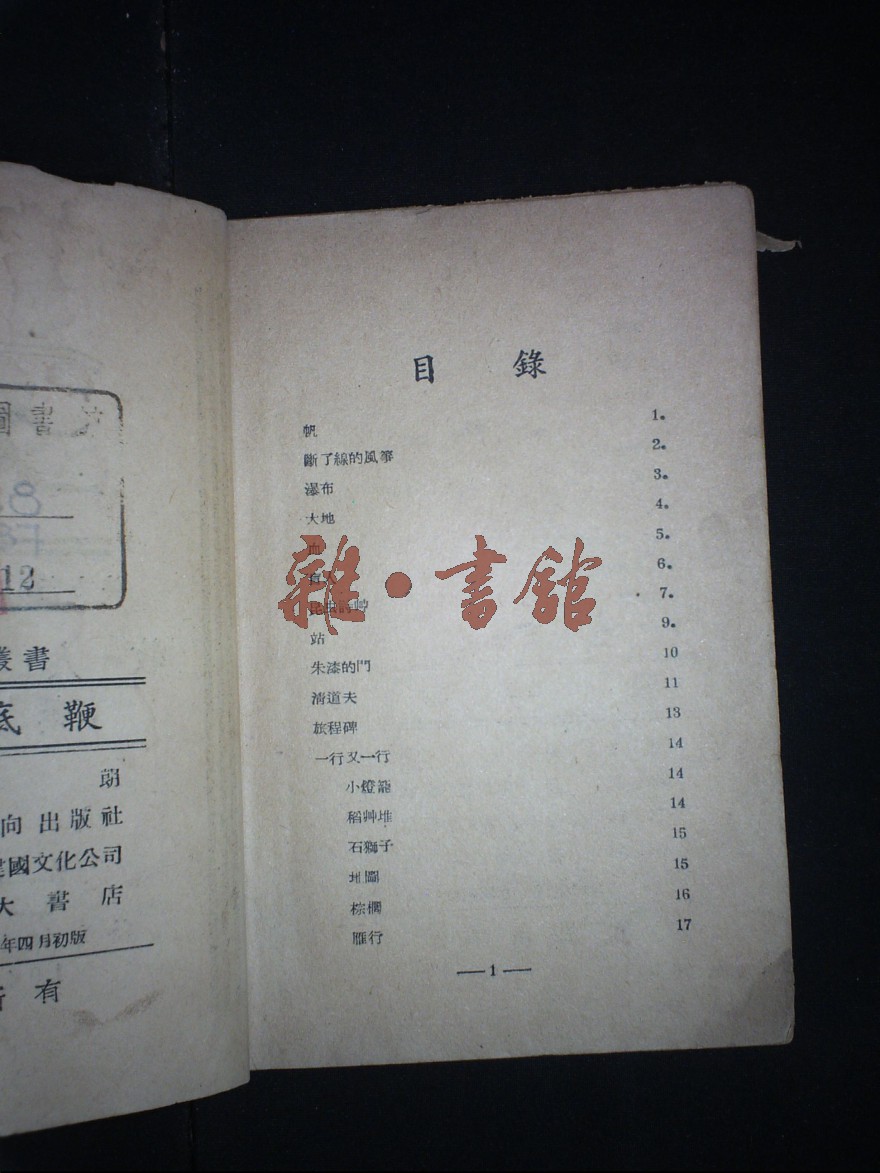 目錄
帆 1.
斷了線的風箏 2.
瀑布 3.
大地 4.
血 5.
盲人 6.
7.
站 9.
朱漆的門 10
清道夫 11
旅程碑 13
一行又一行 14
小燈籠 14
稻艸堆 14
石獅子 15
地圖 15
棕櫚 16
雁行 17
—1—
雜·書館
書
12
叢書
底鞭
胡
向出版社
建國文化公司
大書店
年四月初版
所有